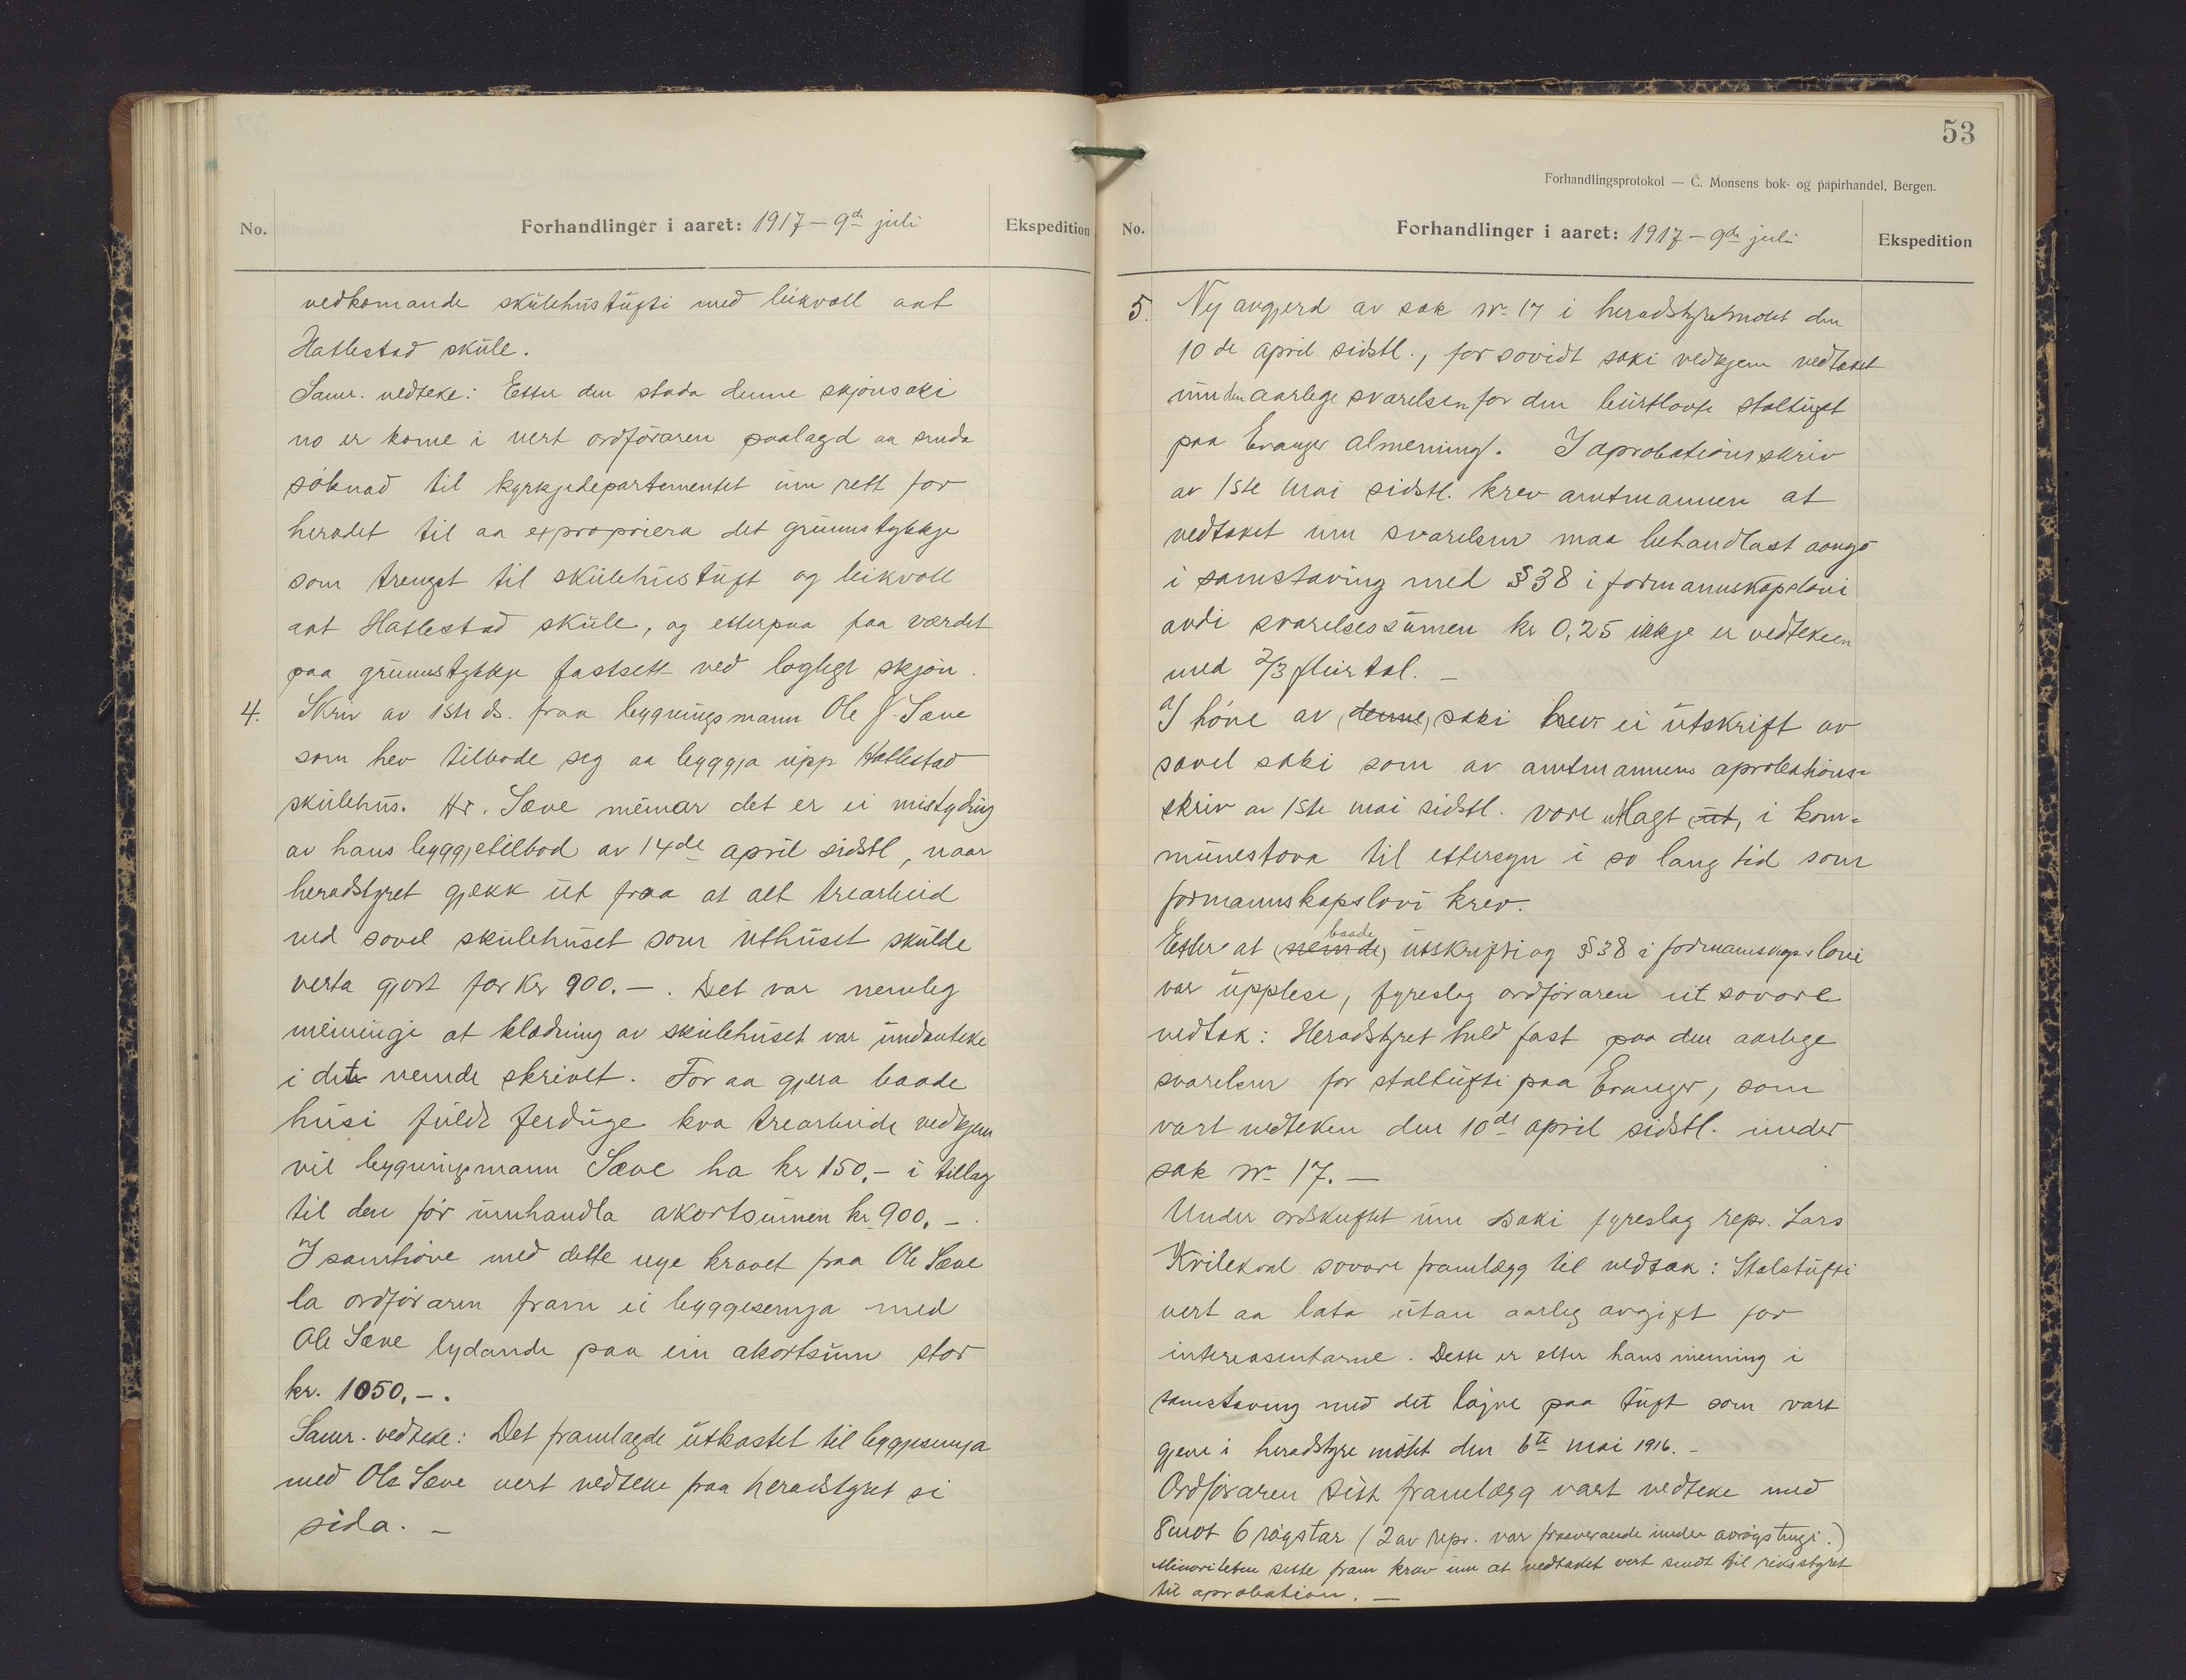 No.
Forhandlinger i aaret: 1917 – 9de juli
Ekspedition
vedkomande skülehüstüfti med leikvoll aat
Hatlestad sküle.
Samr. vedteke: Etter den stoda denne skjonsaki
no er kome i vert ordføraren paalagd aa senda
søknad til kyrkjedepartementet üm rett for
heradet til aa expropriera det grünnstykkje
som trengst til skülehüstüft og leikvoll
aat Hatlestad sküle, og etterpaa faa værdet
paa grünnstykkje fastsett ved loglegt skjøn.
4. Skriv av 1ste ds. fraa bygningsmann Ole J. Sæve
som hev tilbode seg aa byggja üpp Hatlestad
skülehüs. Hr. Sæve meinar det er ei mistyding
av hans byggjetilbod av 14de april sidstl, naar
heradstyret gjekk üt fraa at alt trearbeid
ved sovel skülehüset som üthüset skülde
verta gjort for kr 900.–. Det var nemleg
meiningi at klædning av skülehüset var ündanteke
i dette nemde skrivet. For aa gjera baade
hüsi füldt ferdüge kva trearbeide vedkjem
vil bygningsmann Sæve ha kr 150,– i tillag
til den før ümhandla akortsümen kr 900,–
I samhøve med dette nye kravet fraa Ole Sæve
la ordføraren fram ei byggjesemja med
Ole Sæve lydande paa ein akortsüm stor
kr. 1050,–.
Samr. vedteke: Det framlagde ütkastet til byggjesemja
med Ole Sæve vert vedteke fraa heradstyret si
sida. –
53
Forhandlingsprotokol — C. Monsens bok- og papirhandel, Bergen.
No.
Forhandlinger i aaret: 1917 – 9de juli
Ekspedition
5. Ny avgjerd av sak nr 17 i heradstyremøtet den
10de april sidstl., for sovidt saki vedkjem vedtaket
üm den aarlege svarelsen for den burtlovte støltüft
paa Evanger almenning. I aprobationsskriv
av 1ste mai sidstl. krev amtmannen at
vedtaket üm svarelsen maa behandlast aa nyo
i samstaving med § 38 i formannskapslovi
avdi svarelsessümen kr 0,25 ikkje er vedteken
med 2/3 fleirtal. –
I høve av (denne) saki hev ei ütskrift av
sovel saki som av amtmannens aprobations-
skriv av 1ste mai sidstl. vore utlagt (üt) i kom-
münestova til ettersyn i so lang tid som
formannskapslovi krev.
Etter at (nemde) baade ütskrifti og § 38 i formannskapslovi
var üpplese, fyreslog ordføraren eit sovore
vedtak: Heradstyret held fast paa den aarlege
svarelsen for støltüfti paa Evanger, som
vart vedteken den 10de april sidstl. under
sak nr 17. —
Under ordskiftet üm saki fyreslog repr. Lars
Kvilekval sovore framlegg til vedtak: Stølstüfti
vert aa lata ütan aarleg avgift for
interessentarne. Dette er etter hans meining i
samstaving med det løyve paa tüft som vart
gjeve i heradstyremøtet den 6te mai 1916. –
Ordføraren sitt framlegg vart vedteke med
8 mot 6 røystar (2 av repr. var fraaverande under avrøystingi.)
Minoriteten sette fram krav üm at vedtaket vert sendt til riksstyret
til aprobation. —